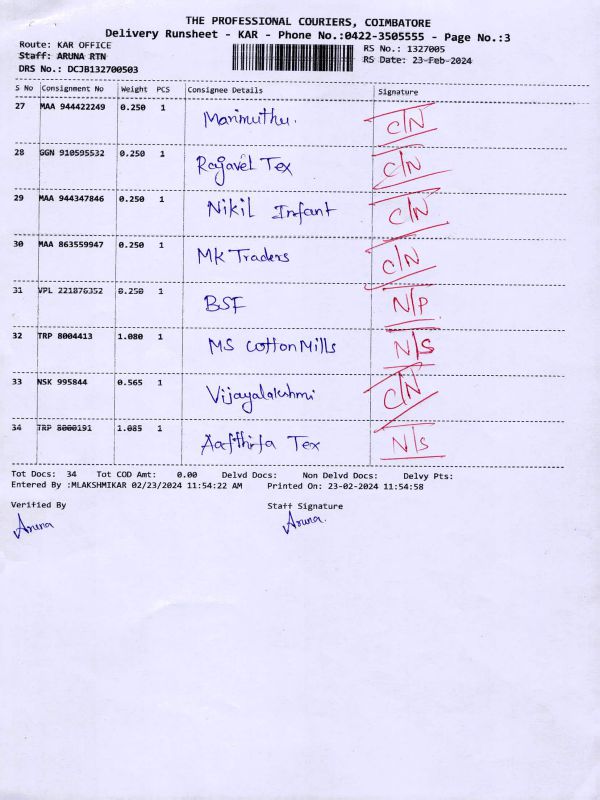 THE PROFESSIONAL COURIERS, COIMBATORE
Delivery Runsheet - KAR - Phone No.:0422-3505555 - Page No.:3
Route: KAR OFFICE RS No.: 1327005
Staff: ARUNA RTN RS Date: 23-Feb-2024
DRS No.: DCJB132700503
S No Consignment No Weight PCS Consignee Details Signature
27 MAA 944422249 0.250 1 Marimuthu. C/N
28 GGN 910595532 0.250 1 Rajavel Tex C/N
29 MAA 944347846 0.250 1 Nikil Infant C/N
30 MAA 863559947 0.250 1 MK Traders C/N
31 VPL 221876352 0.250 1 BSF N/P
32 TRP 8004413 1.080 1 MS Cotton Mills N/S
33 NSK 995844 0.565 1 Vijayalakshmi C/N
34 TRP 8000191 1.085 1 Tex N/S
Tot Docs: 34 Tot COD Amt: 0.00 Delvd Docs: Non Delvd Docs: Delvy Pts:
Entered By :MLAKSHMIKAR 02/23/2024 11:54:22 AM Printed On: 23-02-2024 11:54:58
Verified By Staff Signature
Aruna Aruna.